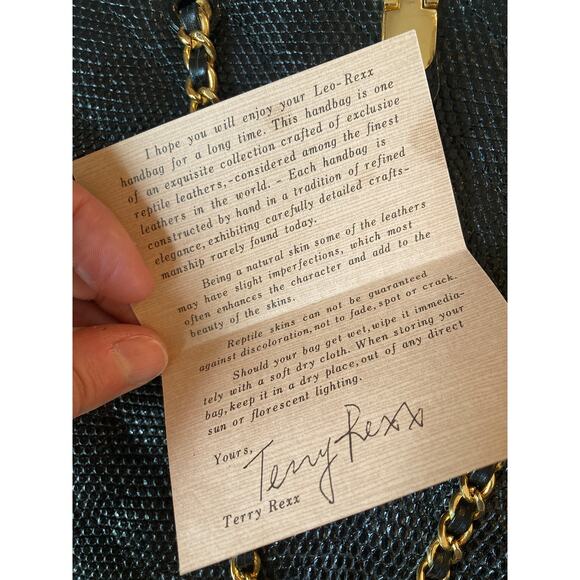 I hope you will enjoy your Leo-Rexx
handbag for a long time. This handbag is one
of an exquisite collection crafted of exclusive
reptile leathers,-considered among the finest
leathers in the world. - Each handbag is
constructed by hand in a tradition of refined
elegance, exhibiting carefully detailed crafts-
manship rarely found today.
Being a natural skin some of the leathers
may have slight imperfections, which most
often enhances the character and add to the
beauty of the skins.
Reptile skins can not be guaranteed
against discoloration, not to fade, spot or crack.
Should your bag get wet, wipe it immedia-
tely with a soft dry cloth. When storing your
bag, keep it in a dry place, out of any direct
sun or florescent lighting.
Yours,
Terry Rexx
Terry Rexx